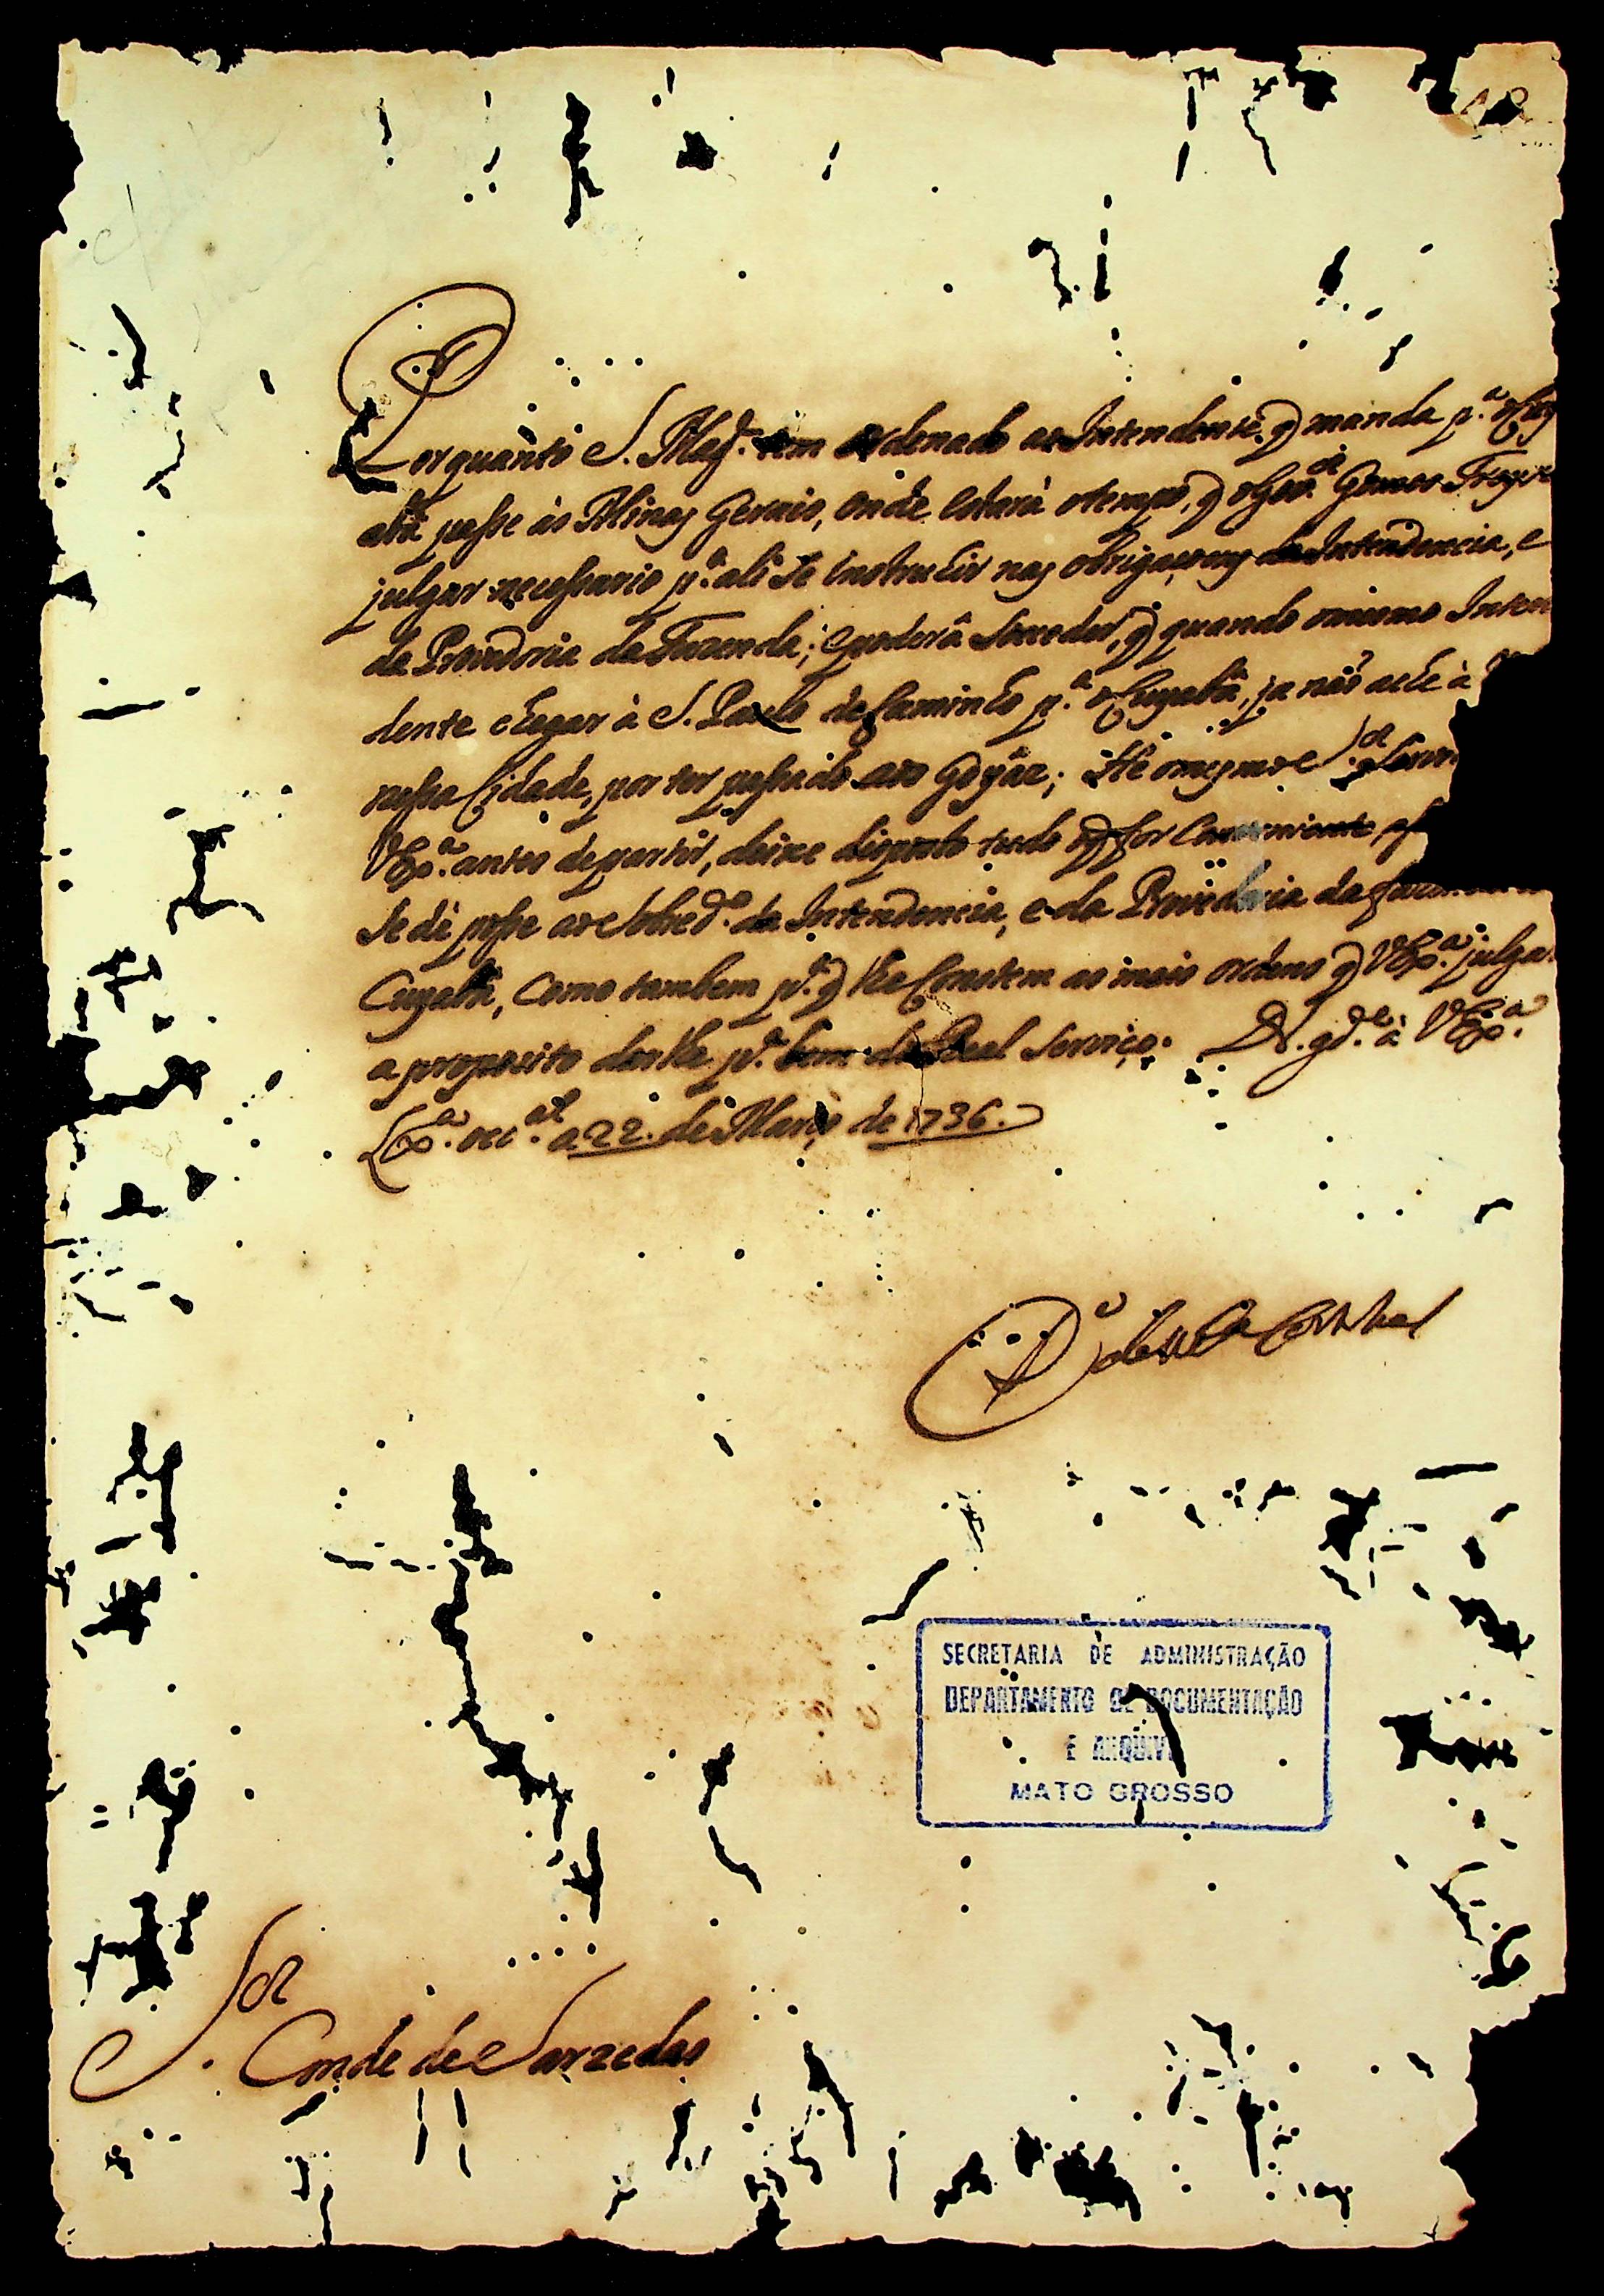 Porquanto S. Mag.de tem ordenado ao Intendente, q̃ manda p.a o Cuy
abá passe ás Minas Geraes, onde estará o tempo, q̃ o Gov.or Gomes Freyre
julgar necessario p.a ali se instruhir nas obrigaçoens da Intendencia, e
da Provedoria da Fazenda; e poderá suceder, q̃ quando o mesmo Inten
dente chegar à S. Paulo de Caminho p.a o Cuyabá, ja não ache à
nessa Cidade, por ter passado aos Goyáz; Hé o mesmo S.or
V Ex.a antes de partir, deixe disposto tudo q̃ for Conveniente p.a
se dè posse ao sobred.o da Intendencia, e da Provedoria da
Cuyabá, Como tambem p.a q̃ lhe Constem as mais ordens q̃ V Ex.a julga
a proposito darlhe p.a bem do Real Serviço. D.s g.de a V Ex.a
Lx.a occ.al a 22. de Março de 1736.
SECRETARIA DE ADMINISTRAÇÃO
DEPARTAMENTO DE DOCUMENTAÇÃO
E ARQUIVO
MATO GROSSO
S.or Conde de Sarzedas